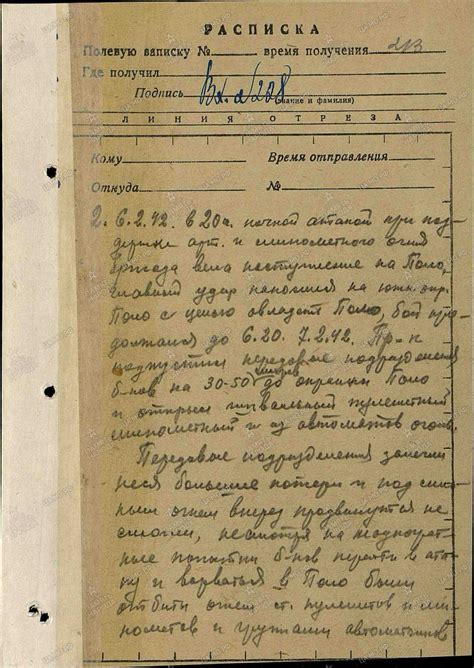 РАСПИСКА
213
Полевую записку № время получения
Где получил
Подпись Вх. №208
(звание и фамилия)
ЛИНИЯ ОТРЕЗА
Кому Время отправления
Откуда №
2. 6.2.42. в 20 ч. ночной атакой при под
держке арт. и минометного огня
бригада вела наступление на Поло,
главный удар наносился на южн. окр.
Поло с целью овладеть Поло, бой про
должался до 6.20. 7.2.42. Пр-к
подпустил передовые подразделения
метров
б-нов на 30-50 до окраины Поло
и открыл шквальный пулеметный
минометный и из автоматов огонь.
Передовые подразделения залегли
неся большие потери и под силь
ным огнем вперед продвинуться не
смогли, несмотря на многократ
ные попытки б-нов перейти в ата
ку и ворваться в Поло были
отбиты огнем ст. пулеметов и ми
нометов и группами автоматчиков